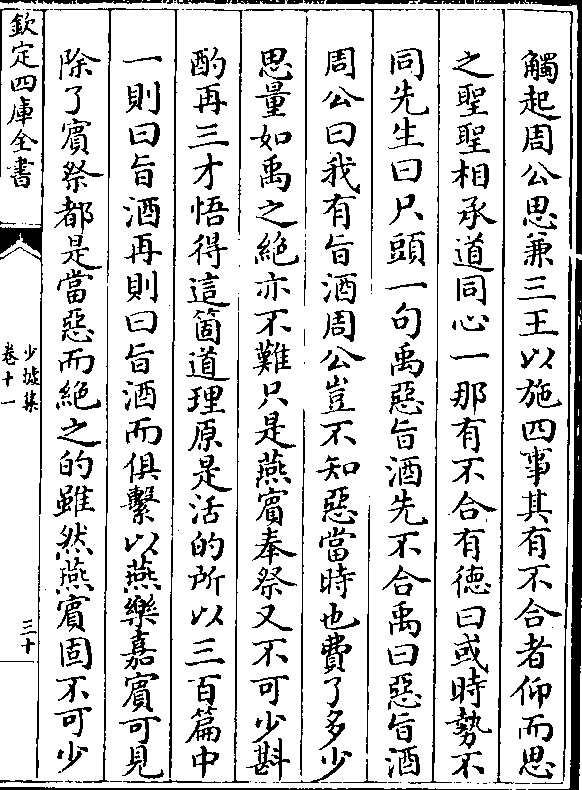 觸起周公思兼三王以施四事其有不合者仰而思
之聖聖相承道同心一那有不合有德曰或時勢不
同先生曰只頭一句禹惡旨酒先不合禹曰惡旨酒
周公曰我有旨酒周公豈不知惡當時也費了多少
思量如禹之絶亦不難只是燕賓奉祭又不可少斟
酌再三才悟得這箇道理原是活的所以三百篇中
一則曰旨酒再則曰旨酒而俱繫以燕樂嘉賓可見
除了賓祭都是當惡而絶之的雖然燕賓固不可少
欽定四庫全書
少墟集
卷十一
三十